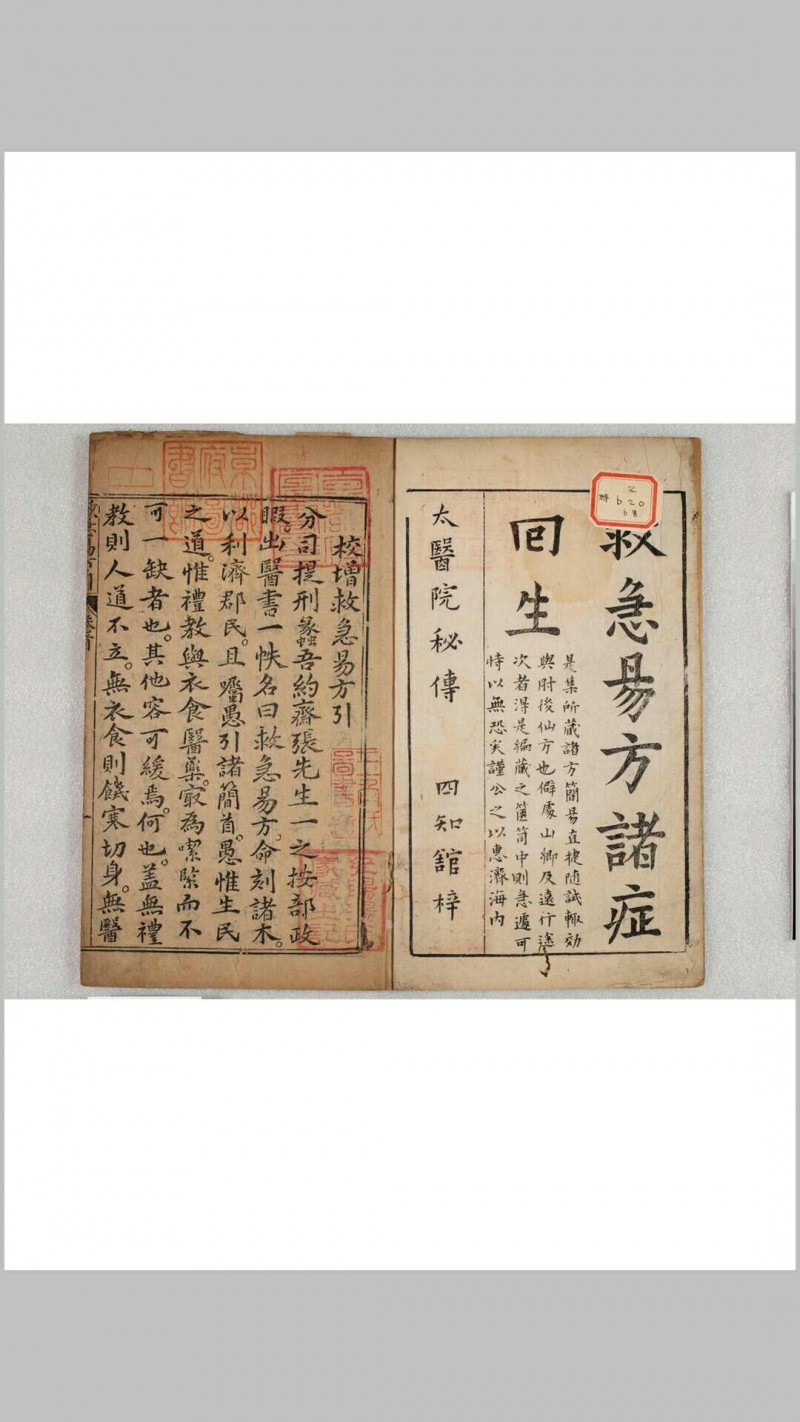 救急易方諸症
回生
是集所藏諸方簡易直捷隨試輙効
與肘後仙方也僻處山鄉及遠行途
次者得是編藏之篋笥中則急遽可
恃以無恐矣謹公之以惠濟海内
太醫院秘傳 四知舘梓
Z
特 b20
b8
校增救急易方引
分司提刑蠡吾約齋張先生一之按部政
暇。出醫書一帙名曰救急易方。命刻諸木。
以利濟郡民。且囑愚引諸簡首。愚惟生民
之道。惟禮教與衣食醫藥。寂為潔䋎而不
可一缺者也。其他容可緩焉。何也。盖無禮
教則人道不立。無衣食則饑寒切身。無醫